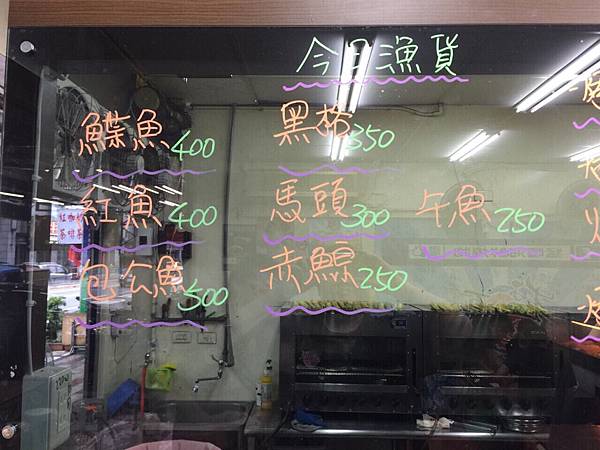 今日漁貨
鰈魚400
紅魚400
包公魚500
黑格350
馬頭300
赤鯮250
午魚250